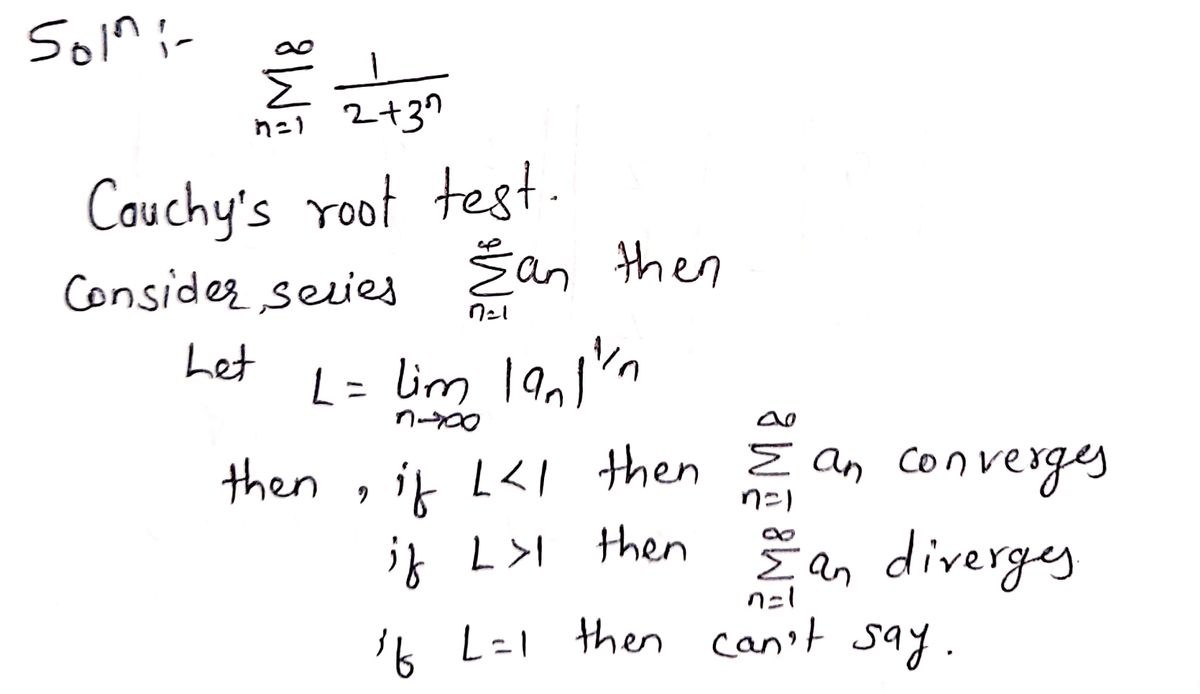 Solⁿ :-
∞
Σ 1/(2+3ⁿ)
n=1
Cauchy's root test.
Consider, series ∞Σn=1 an then
Let L = lim n→∞ |an|^1/n
then, if L<1 then ∞Σn=1 an converges
if L>1 then ∞Σn=1 an diverges
if L=1 then can't say.